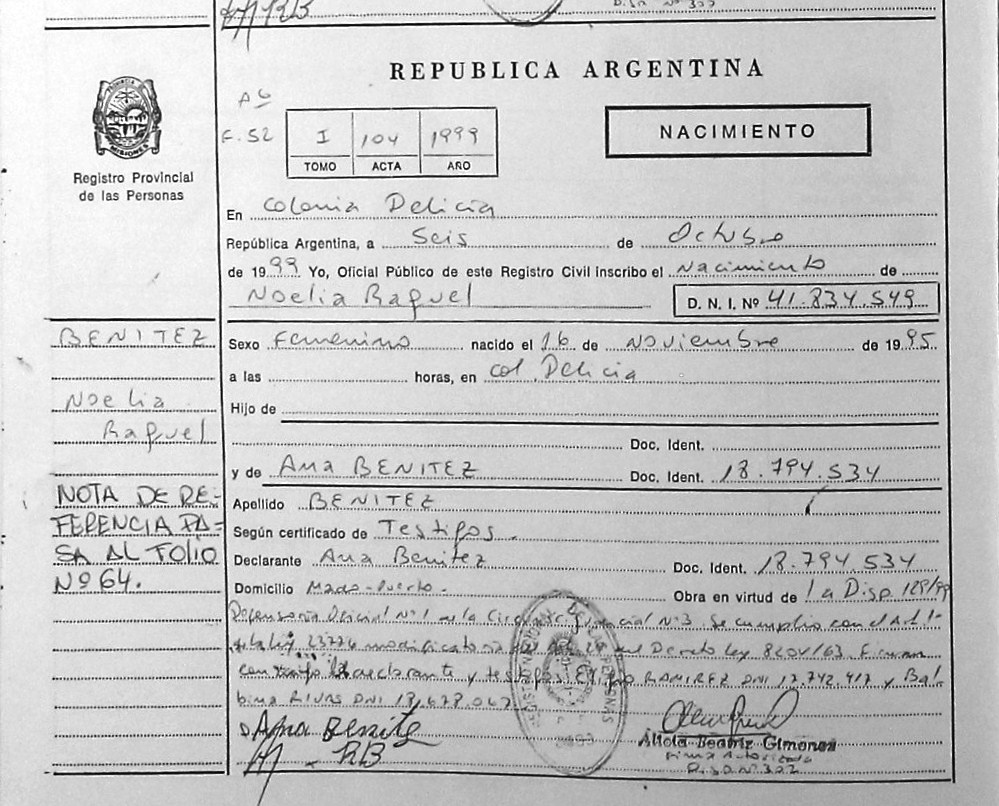 REPUBLICA ARGENTINA
F. 52
I 104 1999
TOMO ACTA AÑO
NACIMIENTO
MISIONES
Registro Provincial
de las Personas
En Colonia Delicia
República Argentina, a Seis de Octubre
de 1999 Yo, Oficial Público de este Registro Civil inscribo el Nacimiento de
Noelia Raquel D. N. I. Nº 41.834.549
BENITEZ
Noelia
Raquel
NOTA DE RE-
FERENCIA PA-
SA AL FOLIO
Nº 64.
Sexo Femenino nacido el 16 de Noviembre de 1995
a las horas, en Col. Delicia
Hijo de
Doc. Ident.
y de Ana BENITEZ Doc. Ident. 18.794.534
Apellido BENITEZ
Según certificado de Testigos.
Declarante Ana Benitez Doc. Ident. 18.794.534
Domicilio Mado-Puerto. Obra en virtud de la Disp 129/99
Defensoria Oficial Nº 1 de la Nº 3. Se cumplio con el Art 1º
de la ley 23776 del Decreto Ley 8204/63. Firman
la declarante y testigos RAMIREZ DNI 17.742.417 y Bal-
bina RIVAS DNI
Ana Benitez
RB
Alicia Beatriz Gimenez
Firma Autorizada